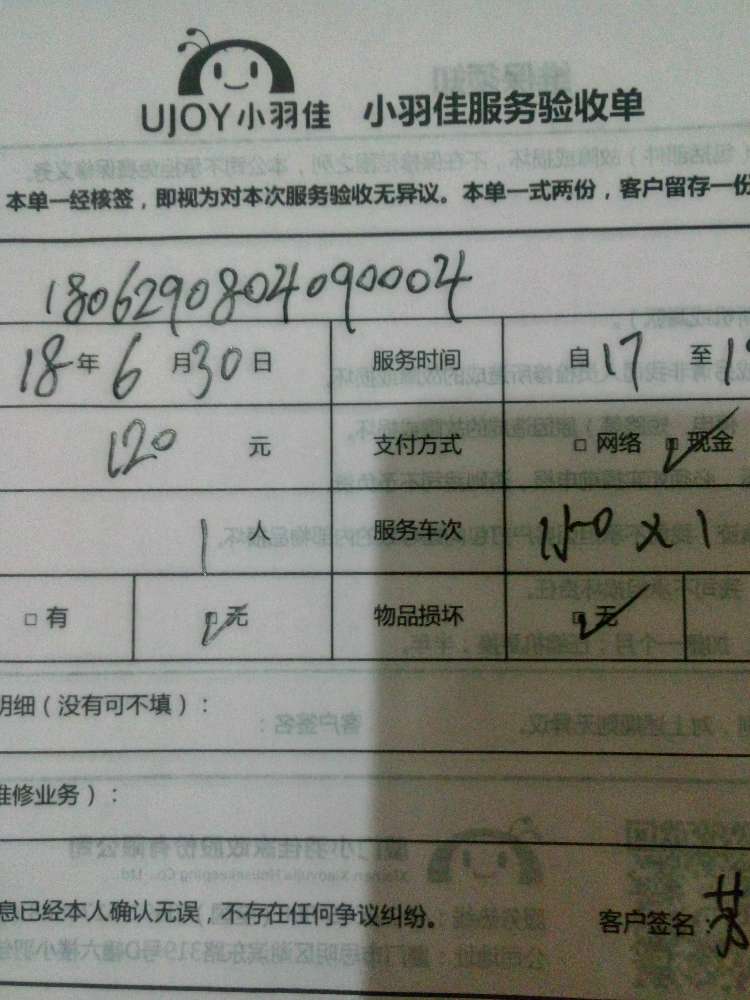 UJOY小羽佳 小羽佳服务验收单
本单一经核签，即视为对本次服务验收无异议。本单一式两份，客户留存一份
1806290804090004
18年6月30日 服务时间 自17至19
120元 支付方式 □网络 ☑现金
1人 服务车次 150×1
□有 ☑无 物品损坏 ☑无
明细（没有可不填）：
维修业务）：
息已经本人确认无误，不存在任何争议纠纷。 客户签名：